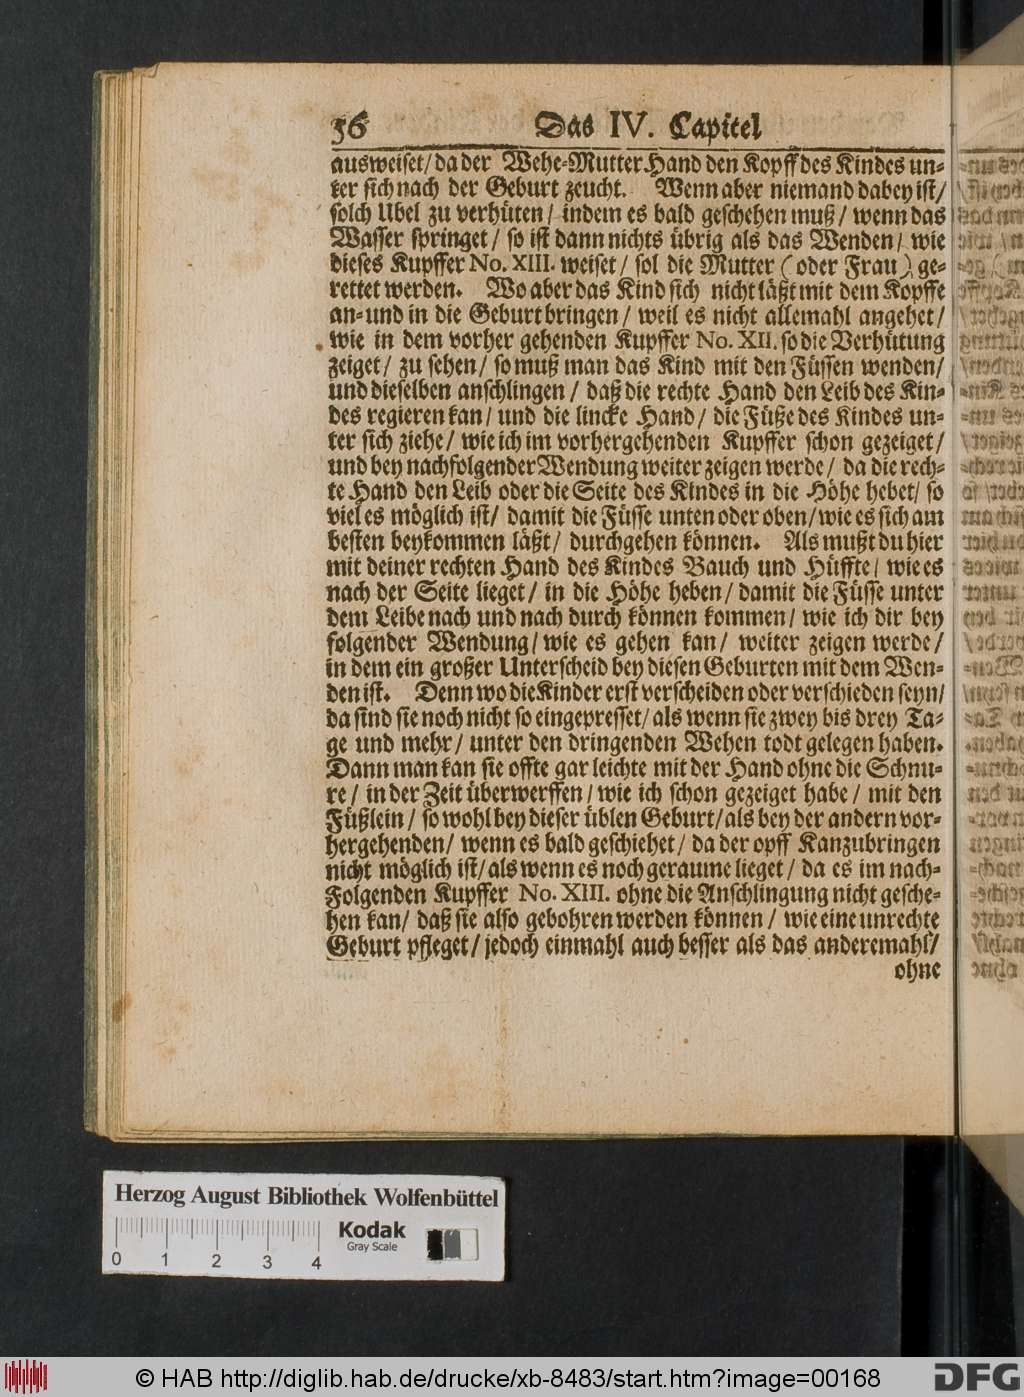 56 Das IV. Capitel
ausweiset/ da der Wehe-Mutter Hand den Kopff des Kindes un-
ter sich nach der Geburt zeucht. Wenn aber niemand dabey ist/
solch Ubel zu verhüten/ indem es bald geschehen muß/ wenn das
Wasser springet/ so ist dann nichts übrig als das Wenden/ wie
dieses Kupffer No. XIII. weiset/ sol die Mutter (oder Frau) ge-
rettet werden. Wo aber das Kind sich nicht läßt mit dem Kopffe
an- und in die Geburt bringen/ weil es nicht allemahl angehet/
wie in dem vorher gehenden Kupffer No. XII. so die Verhütung
zeiget/ zu sehen/ so muß man das Kind mit den Füssen wenden/
und dieselben anschlingen/ daß die rechte Hand den Leib des Kin-
des regieren kan/ und die lincke Hand/ die Füße des Kindes un-
ter sich ziehe/ wie ich im vorhergehenden Kupffer schon gezeiget/
und bey nachfolgender Wendung weiter zeigen werde/ da die rech-
te Hand den Leib oder die Seite des Kindes in die Höhe hebet/ so
viel es möglich ist/ damit die Füsse unten oder oben/ wie es sich am
besten beykommen läßt/ durchgehen können. Als mußt du hier
mit deiner rechten Hand des Kindes Bauch und Hüffte/ wie es
nach der Seite lieget/ in die Höhe heben/ damit die Füsse unter
dem Leibe nach und nach durch können kommen/ wie ich dir bey
folgender Wendung/ wie es gehen kan/ weiter zeigen werde/
in dem ein großer Unterscheid bey diesen Geburten mit dem Wen-
den ist. Denn wo die Kinder erst verscheiden oder verschieden seyn/
da sind sie noch nicht so eingepresset/ als wenn sie zwey bis drey Ta-
ge und mehr/ unter den dringenden Wehen todt gelegen haben.
Dann man kan sie offte gar leichte mit der Hand ohne die Schnu-
re/ in der Zeit überwerffen/ wie ich schon gezeiget habe/ mit den
Füßlein/ so wohl bey dieser üblen Geburt/ als bey der andern vor-
hergehenden/ wenn es bald geschiehet/ da der opff Kanzubringen
nicht möglich ist/ als wenn es noch geraume lieget/ da es im nach-
Folgenden Kupffer No. XIII. ohne die Anschlingung nicht gesche-
hen kan/ daß sie also gebohren werden können/ wie eine unrechte
Geburt pfleget/ jedoch einmahl auch besser als das anderemahl/
ohne
Herzog August Bibliothek Wolfenbüttel
Kodak
Gray Scale
0 1 2 3 4
© HAB http://diglib.hab.de/drucke/xb-8483/start.htm?image=00168
DFG